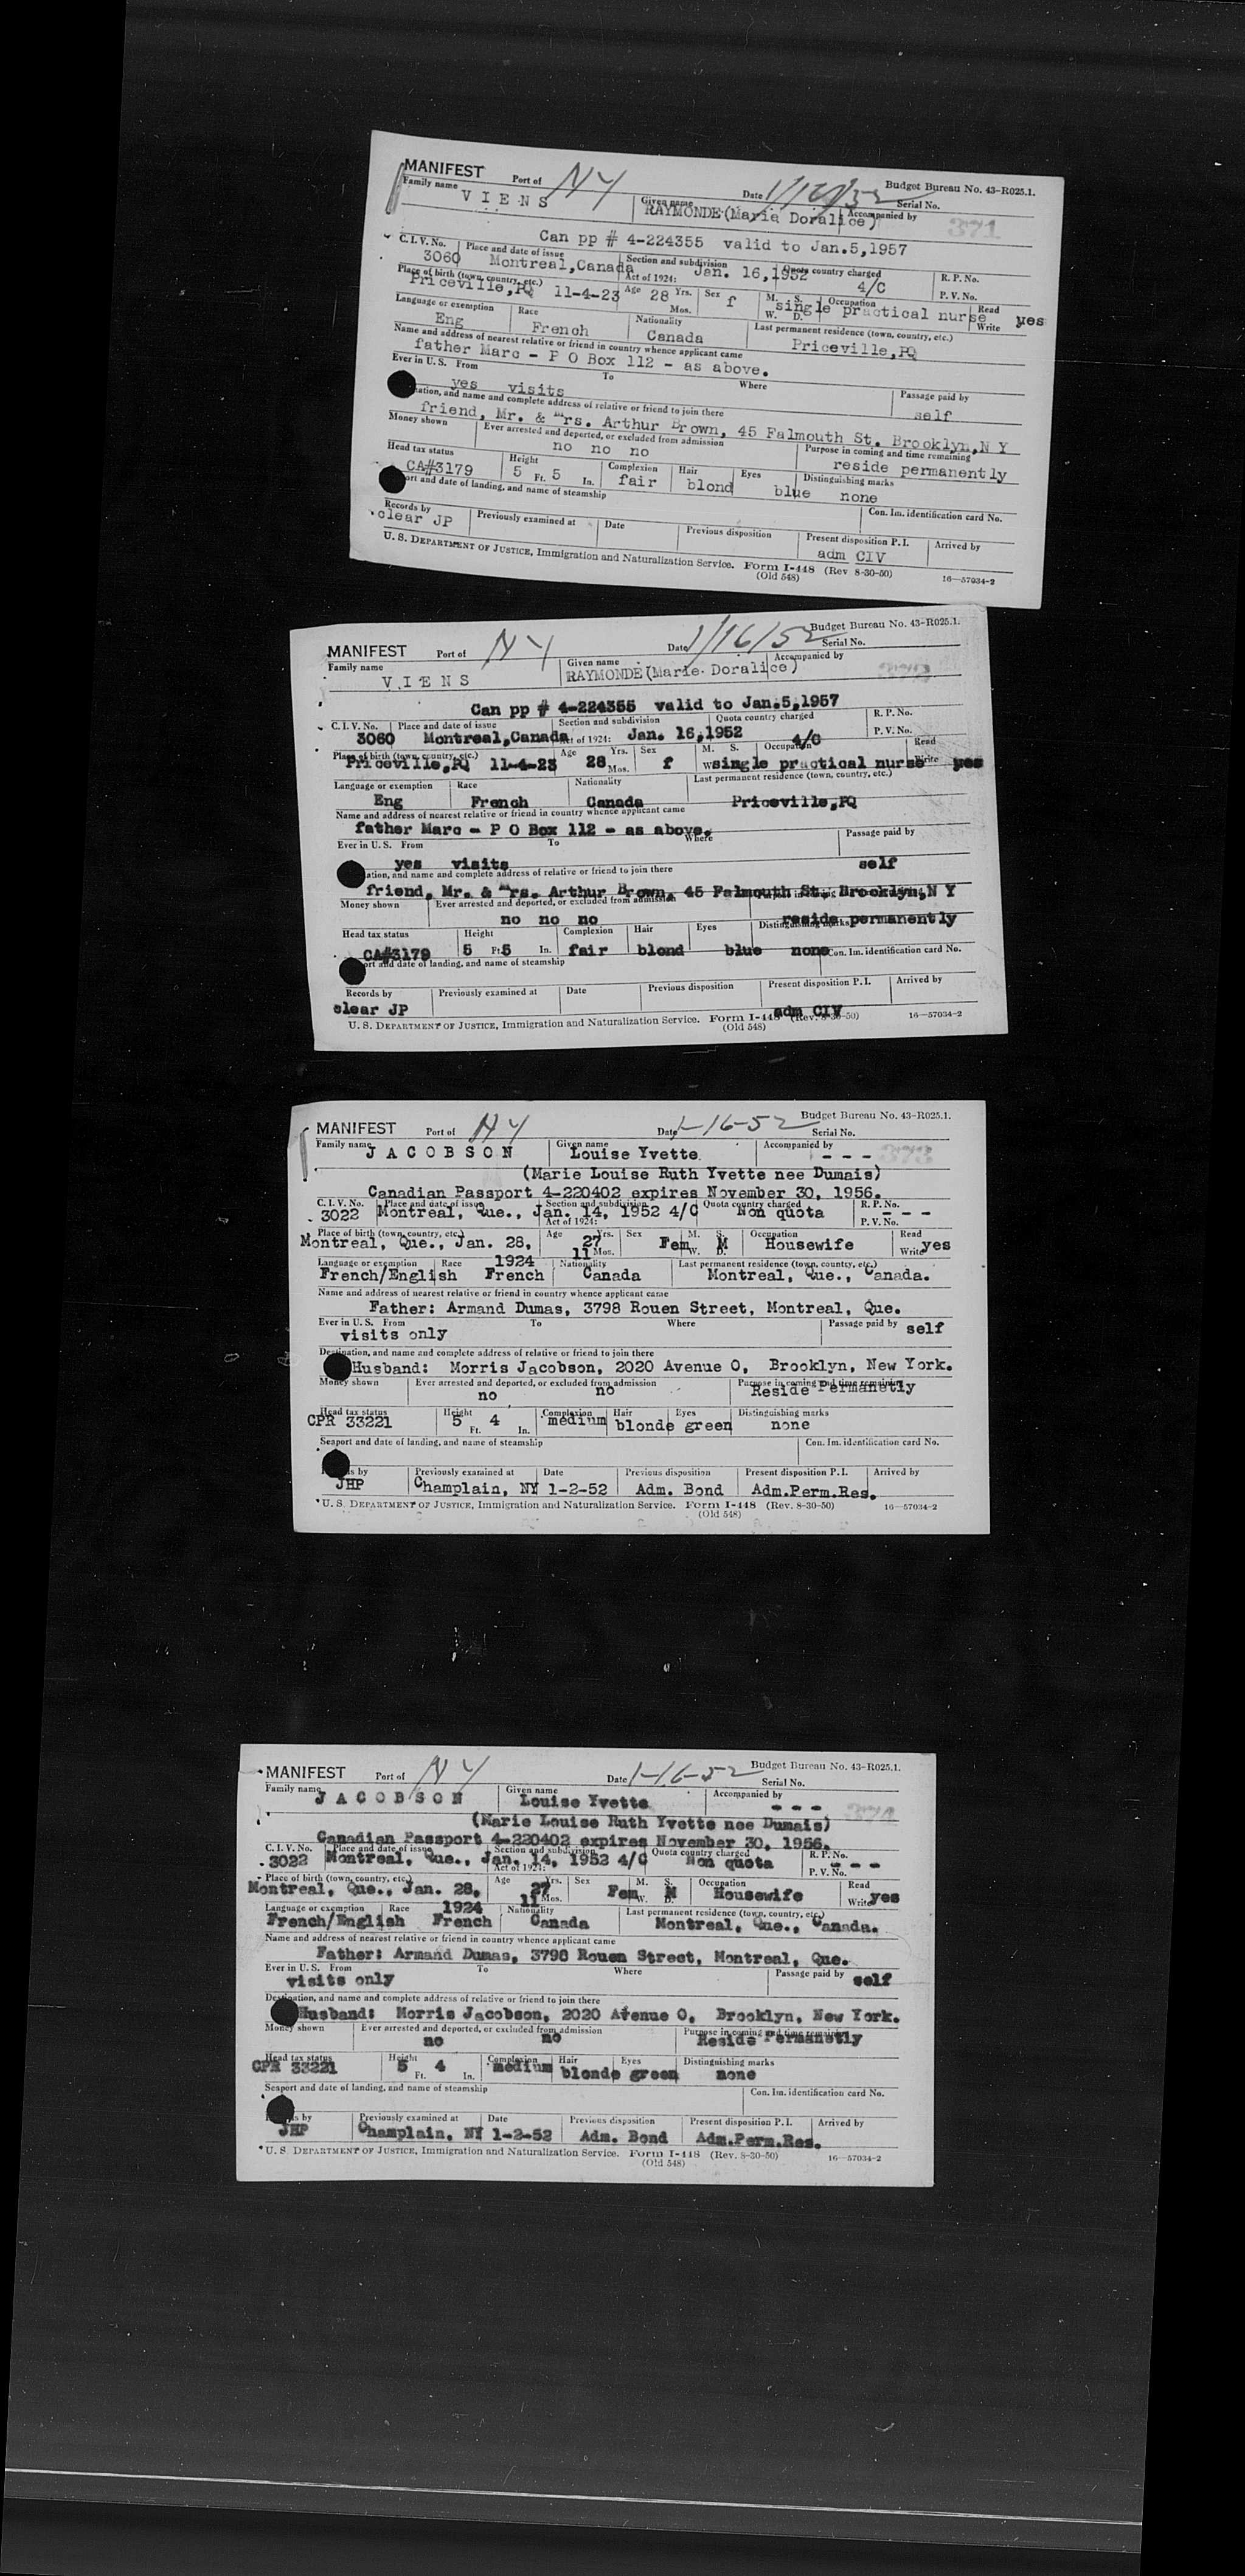 MANIFEST Port of NY Date 1/16/52 Budget Bureau No. 43-R025.1.
Family name VIENS Given name RAYMONDE (Maria Doralice) Accompanied by Serial No. 371
Can pp # 4-224355 valid to Jan.5,1957
C. I. V. No. Place and date of issue Section and subdivision Quota country charged R. P. No.
3060 Montreal,Canada Act of 1924: Jan. 16,1952 4/C P. V. No.
Place of birth (town, country, etc.) Age Yrs. Sex M. S. Occupation Read
Priceville,PQ 11-4-23 28 Mos. f W. D. single practical nurse Write yes
Language or exemption Race Nationality Last permanent residence (town, country, etc.)
Eng French Canada Priceville,PQ
Name and address of nearest relative or friend in country whence applicant came
father Marc - P O Box 112 - as above.
Ever in U. S. From To Where Passage paid by
yes visits self
ation, and name and complete address of relative or friend to join there
friend, Mr. & Mrs. Arthur Brown, 45 Falmouth St. Brooklyn,N Y
Money shown Ever arrested and deported, or excluded from admission Purpose in coming and time remaining
no no no reside permanently
Head tax status Height Complexion Hair Eyes Distinguishing marks
CA#3179 5 Ft. 5 In. fair blond blue none
ort and date of landing, and name of steamship Con. Im. identification card No.
Records by Previously examined at Date Previous disposition Present disposition P. I. Arrived by
clear JP adm CIV
U. S. DEPARTMENT OF JUSTICE, Immigration and Naturalization Service. Form I-448 (Rev 8-30-50) 16—57034-2
(Old 548)
MANIFEST Port of NY Date 1/16/52 Budget Bureau No. 43-R025.1.
Serial No.
Family name Given name Accompanied by
VIENS RAYMONDE (Marie Doralice)
Can pp # 4-224355 valid to Jan.5,1957
C. I. V. No. Place and date of issue Section and subdivision Quota country charged R. P. No.
3060 Montreal,Canada Act of 1924: Jan. 16,1952 4/C P. V. No.
Place of birth (town, country, etc.) Age Yrs. Sex M. S. Occupation Read
Priceville,PQ 11-4-23 28 Mos. f W single practical nurse Write yes
Language or exemption Race Nationality Last permanent residence (town, country, etc.)
Eng French Canada Priceville,PQ
Name and address of nearest relative or friend in country whence applicant came
father Marc - P O Box 112 - as above.
Ever in U. S. From To Where Passage paid by
yes visits self
ation, and name and complete address of relative or friend to join there
friend, Mr. & Mrs. Arthur Brown, 45 Falmouth St. Brooklyn,N Y
Money shown Ever arrested and deported, or excluded from admission
no no no reside permanently
Head tax status Height Complexion Hair Eyes Distinguishing marks
CA#3179 5 Ft 5 In. fair blond blue none Con. Im. identification card No.
ort and date of landing, and name of steamship
Records by Previously examined at Date Previous disposition Present disposition P. I. Arrived by
clear JP adm CIV
U. S. DEPARTMENT OF JUSTICE, Immigration and Naturalization Service. Form I-448 (Rev. 8-30-50) 16—57034-2
(Old 548)
MANIFEST Port of NY Date 1-16-52 Budget Bureau No. 43-R025.1.
Serial No.
Family name JACOBSON Given name Louise Yvette Accompanied by - - - 373
(Marie Louise Ruth Yvette nee Dumais)
Canadian Passport 4-220402 expires November 30, 1956.
C. I. V. No. Place and date of issue Section and subdivision Quota country charged R. P. No.
3022 Montreal, Que., Jan. 14, 1952 4/C Non quota - - -
Act of 1924: P. V. No.
Place of birth (town, country, etc.) Age Yrs. Sex M. S. Occupation Read
Montreal, Que., Jan. 28, 27 Fem W. D. M Housewife Write yes
11 Mos.
Language or exemption Race 1924 Nationality Last permanent residence (town, country, etc.)
French/English French Canada Montreal, Que., Canada.
Name and address of nearest relative or friend in country whence applicant came
Father: Armand Dumas, 3798 Rouen Street, Montreal, Que.
Ever in U. S. From To Where Passage paid by self
visits only
Destination, and name and complete address of relative or friend to join there
Husband: Morris Jacobson, 2020 Avenue O, Brooklyn, New York.
Money shown Ever arrested and deported, or excluded from admission Purpose in coming and time remaining
no no Reside Permanetly
Head tax status Height Complexion Hair Eyes Distinguishing marks
CPR 33221 5 Ft. 4 In. medium blonde green none
Seaport and date of landing, and name of steamship Con. Im. identification card No.
s by Previously examined at Date Previous disposition Present disposition P. I. Arrived by
JHP Champlain, NY 1-2-52 Adm. Bond Adm.Perm.Res.
U. S. DEPARTMENT OF JUSTICE, Immigration and Naturalization Service. Form I-448 (Rev. 8-30-50) 16—57034-2
(Old 548)
MANIFEST Port of NY Date 1-16-52 Budget Bureau No. 43-R025.1.
Serial No.
Family name JACOBSON Given name Louise Yvette Accompanied by - - - 374
(Marie Louise Ruth Yvette nee Dumais)
Canadian Passport 4-220402 expires November 30, 1956.
C. I. V. No. Place and date of issue Section and subdivision Quota country charged R. P. No.
3022 Montreal, Que., Jan. 14, 1952 4/C Non quota - - -
Act of 1924: P. V. No.
Place of birth (town, country, etc.) Age Yrs. Sex M. S. Occupation Read
Montreal, Que., Jan. 28, 27 Fem W. D. M Housewife Write yes
11 Mos.
Language or exemption Race 1924 Nationality Last permanent residence (town, country, etc.)
French/English French Canada Montreal, Que., Canada.
Name and address of nearest relative or friend in country whence applicant came
Father: Armand Dumas, 3798 Rouen Street, Montreal, Que.
Ever in U. S. From To Where Passage paid by self
visits only
Destination, and name and complete address of relative or friend to join there
Husband: Morris Jacobson, 2020 Avenue O, Brooklyn, New York.
Money shown Ever arrested and deported, or excluded from admission Purpose in coming and time remaining
no no Reside Permanetly
Head tax status Height Complexion Hair Eyes Distinguishing marks
CPR 33221 5 Ft. 4 In. medium blonde green none
Seaport and date of landing, and name of steamship Con. Im. identification card No.
s by Previously examined at Date Previous disposition Present disposition P. I. Arrived by
JHP Champlain, NY 1-2-52 Adm. Bond Adm.Perm.Res.
U. S. DEPARTMENT OF JUSTICE, Immigration and Naturalization Service. Form I-448 (Rev. 8-30-50) 16—57034-2
(Old 548)